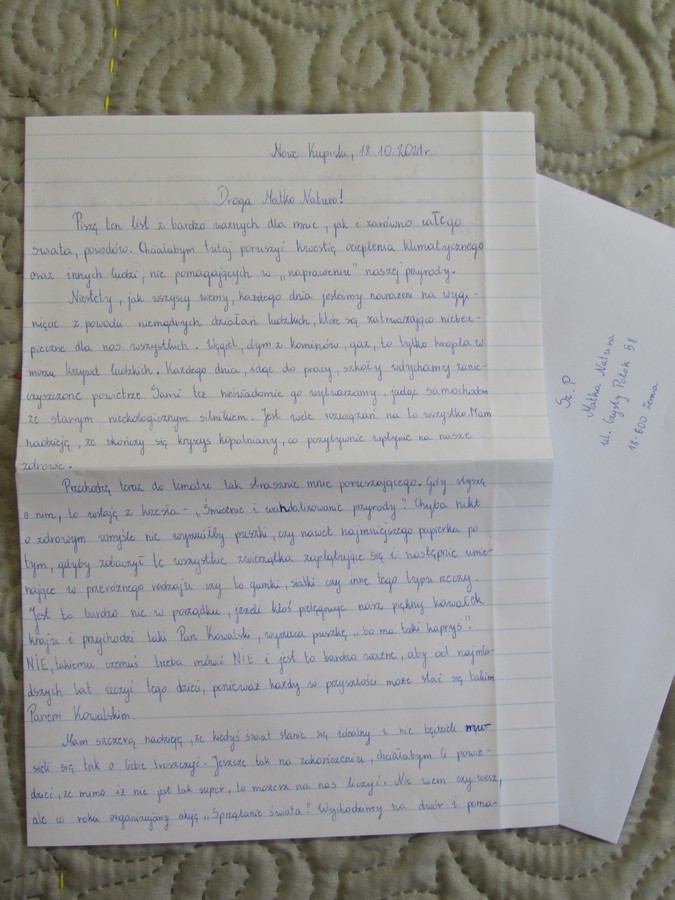 Nowe Kupiski, 18.10.2021r.
Droga Matko Naturo!
Piszę ten list z bardzo ważnych dla mnie, jak i zarówno całego
świata, powodów. Chciałabym tutaj poruszyć kwestię ocieplenia klimatycznego
oraz innych ludzi, nie pomagających w „naprawieniu" naszej przyrody.
Niestety, jak wszyscy wiemy, każdego dnia jesteśmy narażeni na wygi-
nięcie z powodu niemądrych działań ludzkich, które są zatrważająco niebez-
pieczne dla nas wszystkich. Węgiel, dym z kominów, gaz, to tylko kropla w
morzu krzywd ludzkich. Każdego dnia, idąc do pracy, szkoły wdychamy zanie-
czyszczone powietrze. Sami też nieświadomie go wytwarzamy, jadąc samochodem
ze starym nieekologicznym silnikiem. Jest wiele rozwiązań na to wszystko. Mam
nadzieję, że skończy się kryzys kopalniany, co pozytywnie wpłynie na nasze
zdrowie.
Przechodzę teraz do tematu tak strasznie mnie poruszającego. Gdy słyszę
o nim, to wstaję z krzesła - „Śmiecenie i wandalizowanie przyrody". Chyba nikt
o zdrowym umyśle nie wyrzuciłby puszki, czy nawet najmniejszego papierka po
tym, gdyby zobaczył te wszystkie zwierzątka zaplątujące się i następnie umie-
rające w przeróżnego rodzaju czy to gumki, siatki czy inne tego typu rzeczy.
Jest to bardzo nie w porządku, jeżeli ktoś pielęgnuje nasz piękny kawałek
kraju i przychodzi taki Pan Kowalski, wyrzuca puszkę „bo ma taki kaprys".
NIE, takiemu czemuś trzeba mówić NIE i jest to bardzo ważne, aby od najmło-
dszych lat uczyć tego dzieci, ponieważ każdy w przyszłości może stać się takim
Panem Kowalskim.
Mam szczerą nadzieję, że kiedyś świat stanie się idealny i nie będzieli mu-
sieli się tak o Ciebie troszczyć. Jeszcze tak na zakończenie, chciałabym Ci powie-
dzieć, że mimo iż nie jest tak super, to możesz na nas liczyć. Nie wiem czy wiesz,
ale co roku organizujemy akcję „Sprzątanie świata". Wychodzimy na dwór i poma-
Sz. P
Matka Natura
ul. Czysty Potok 98
18-600 Ziemia